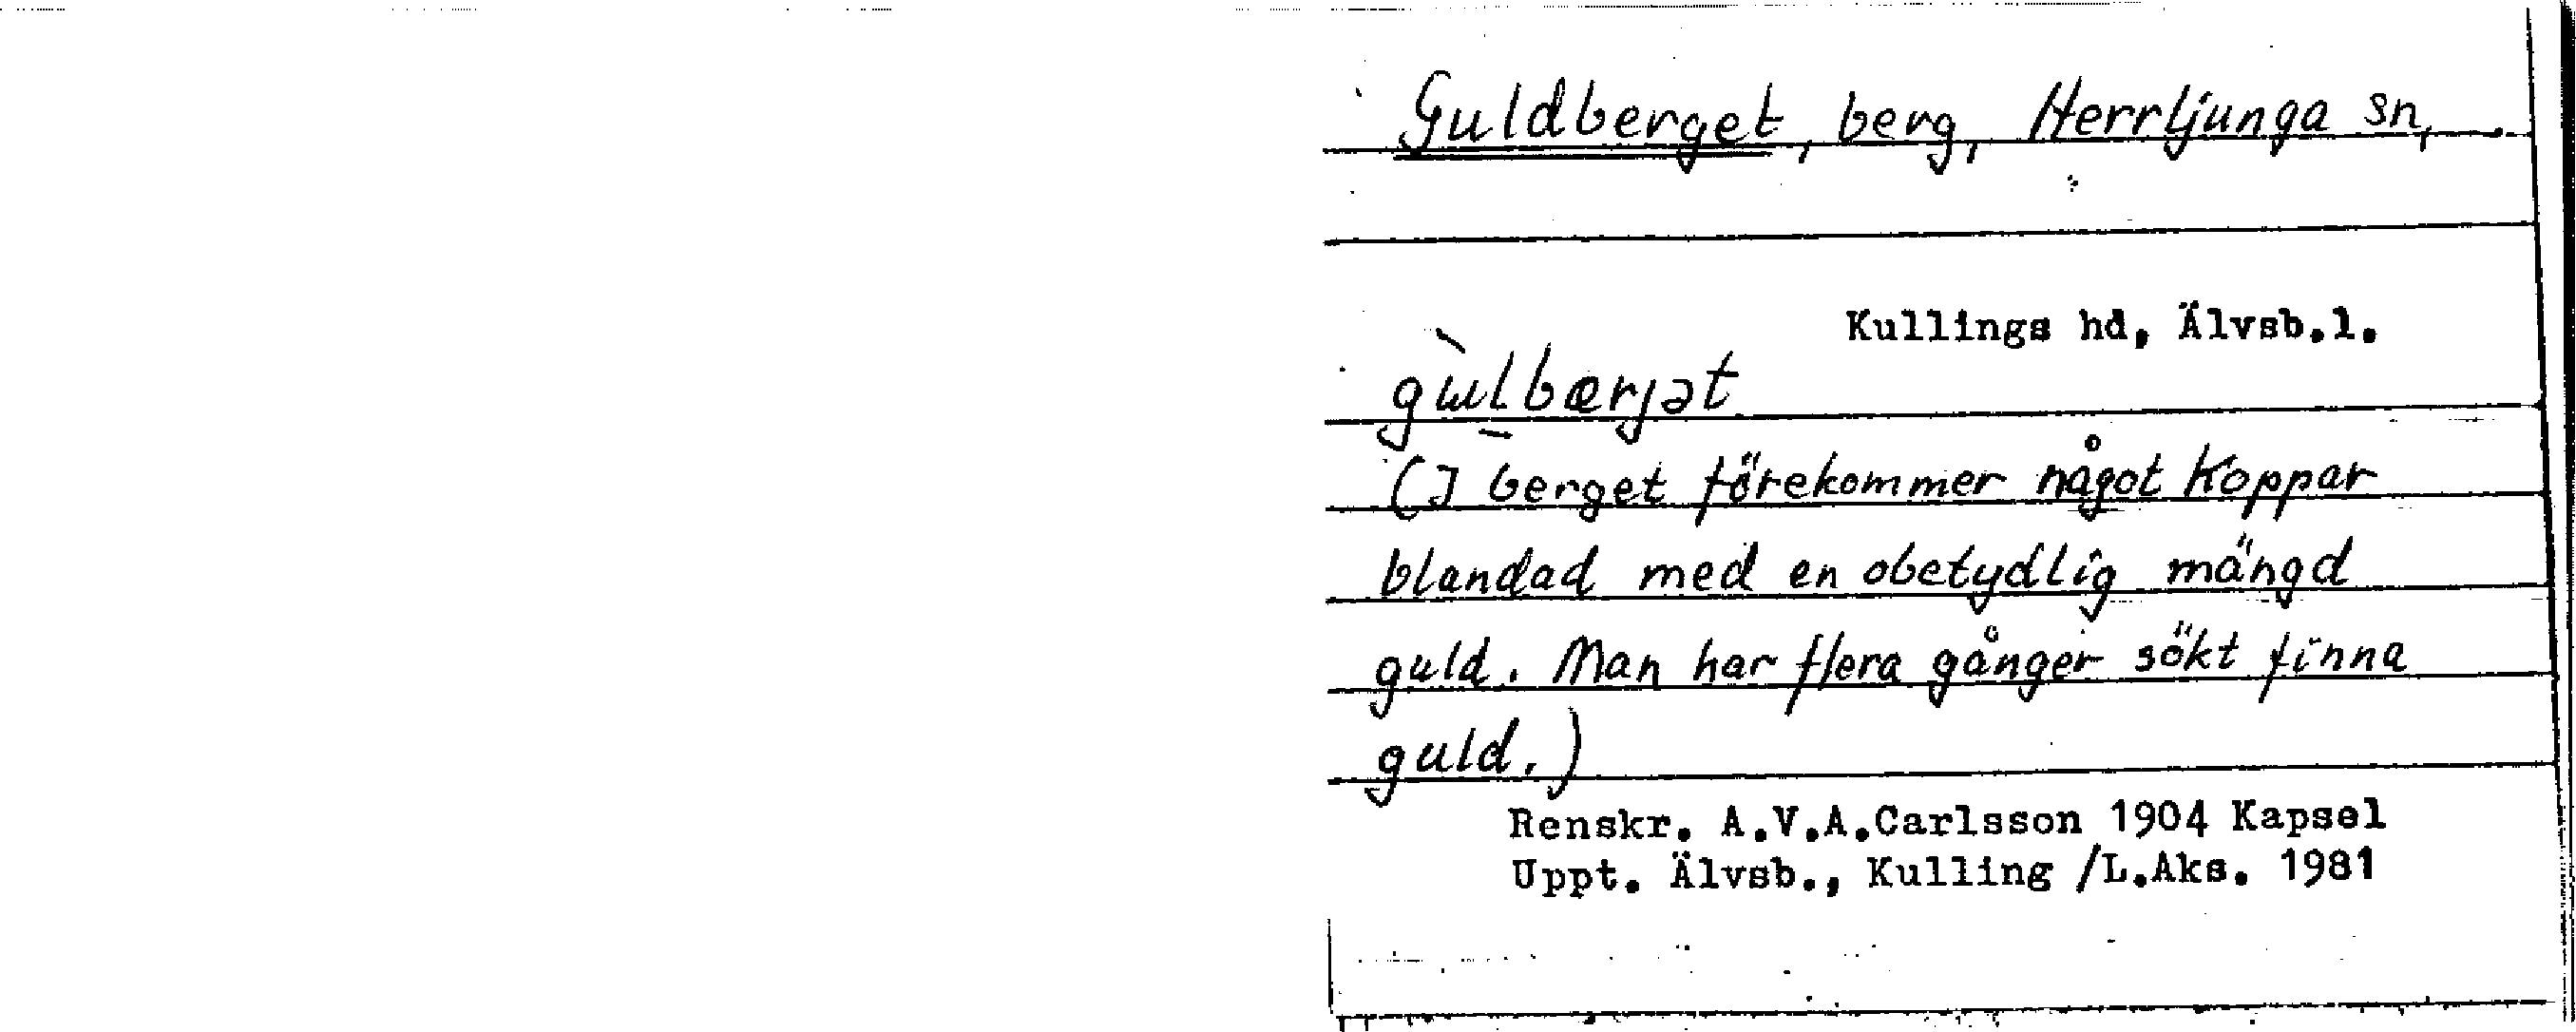 Guldberget, berg, Herrljunga sn,
Kullings hd, Älvsb.l.
gɯ̀lbærjət
(I berget förekommer något Koppar
blandad med en obetydlig mängd
guld. Man har flera gånger sökt finna
guld.)
Renskr. A.V.A.Carlsson 1904 Kapsel
Uppt. Älvsb., Kulling /L.Aks. 1981